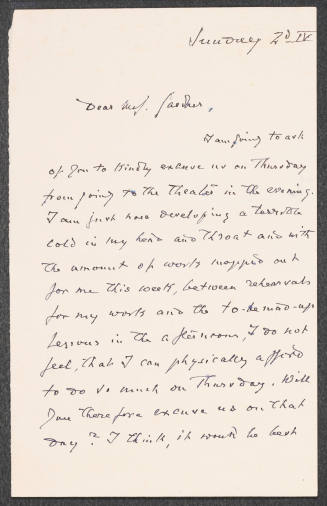 Sunday 2d IV
Dear Mrs. Gardner,
I am going to ask
of you to kindly excuse us on Thursday
from going to the theatre in the evening.
I am just now developing a terrible
cold in my head and throat and with
the amount of work mapped out
for me this week, between rehearsals
for my work and the to-be-made-up
lessons in the afternoons, I do not
feel, that I can physically afford
to do so much on Thursday. Will
you therefore excuse us on that
day? I think, it would be best